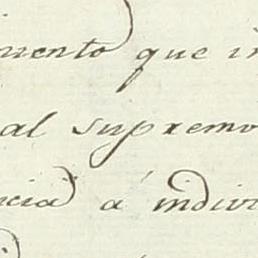 miento que in
al supremo
ncia á indivi